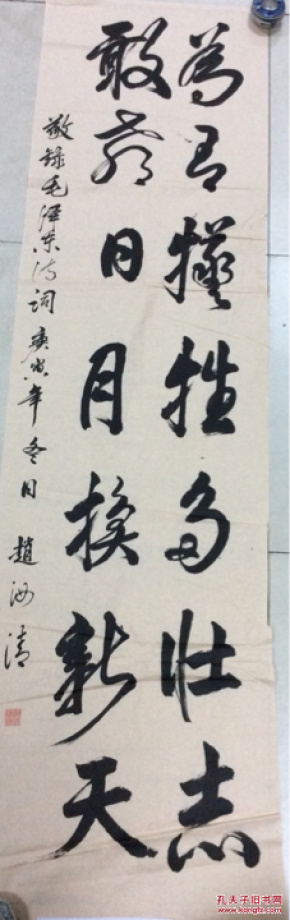 為有犧牲多壯志
敢教日月換新天
敬錄毛澤東詩詞庚寅年冬月
趙汝清
孔夫子旧书网
www.kongfz.com